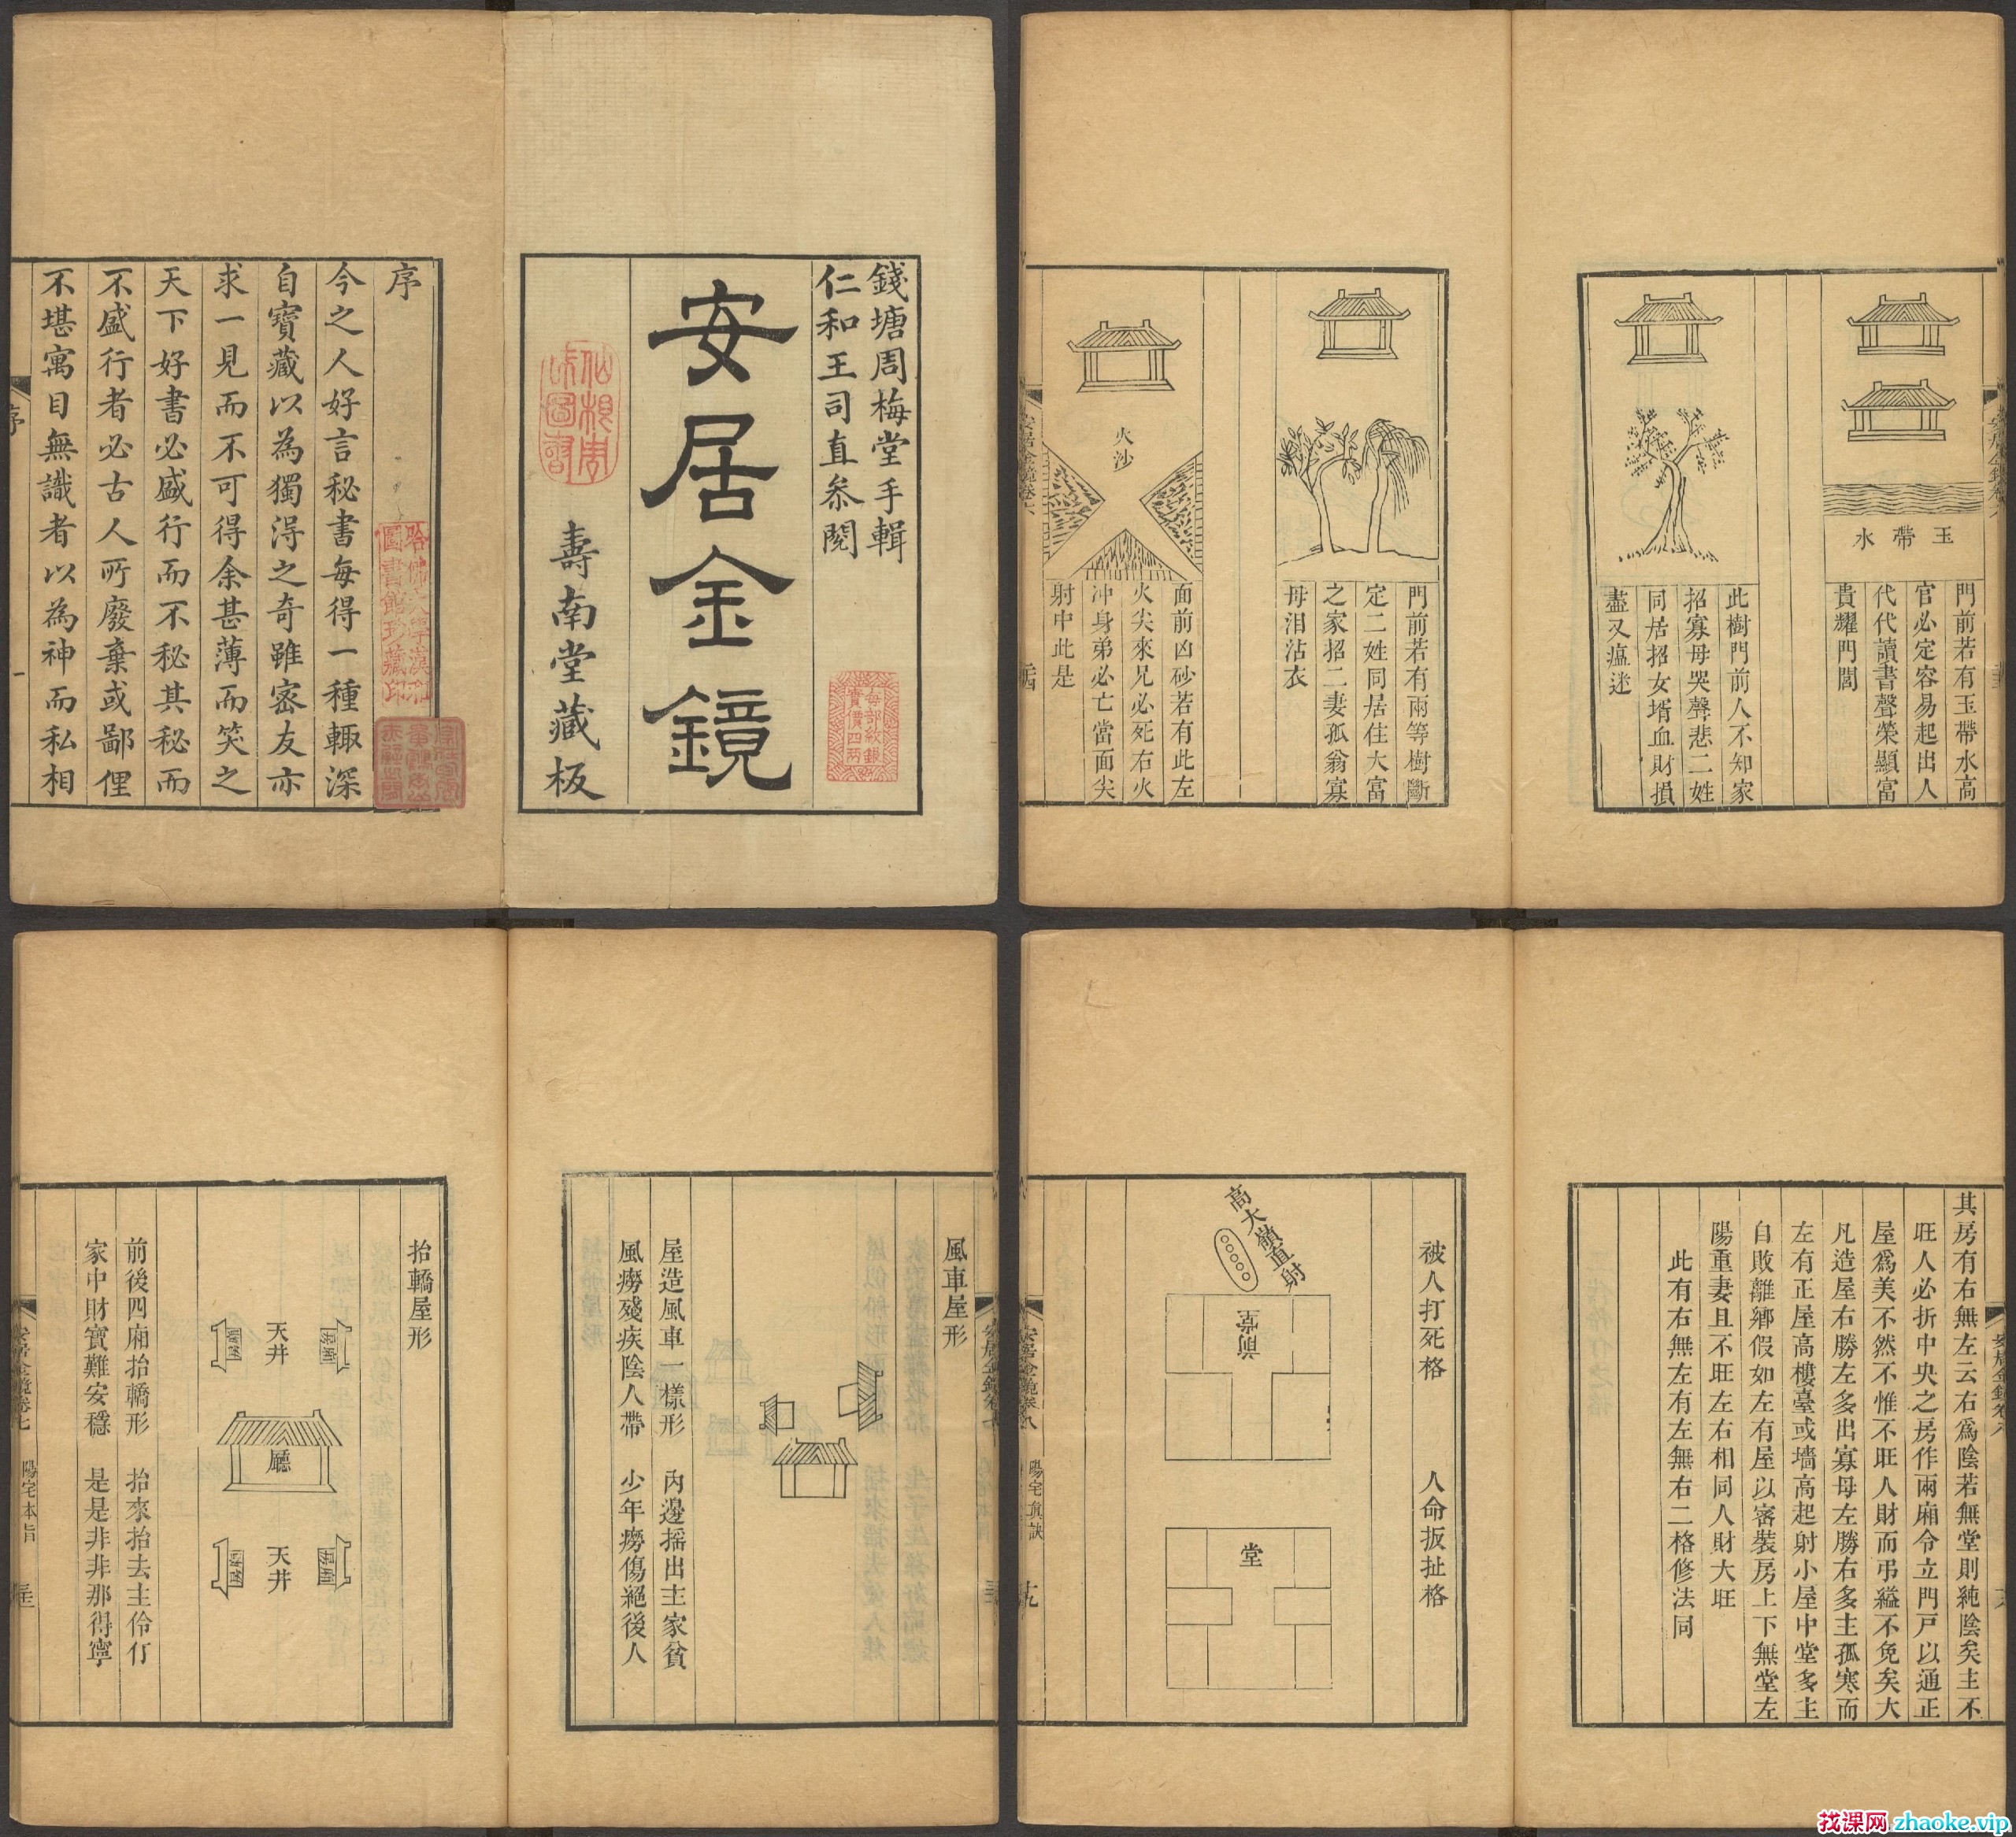 錢塘周梅堂手輯
仁和王司直叅閱
安居金鏡
壽南堂藏板
每部紋銀
實價四兩
序
今之人好言秘書每得一種輙深
自寶藏以為獨淂之奇雖密友亦
求一見而不可得余甚薄而笑之
天下好書必盛行而不秘其秘而
不盛行者必古人所廢棄或鄙俚
不堪寓目無識者以為神而私相
哈佛大學漢和
圖書館珍藏印
序
一
玉帶水
門前若有玉帶水高
官必定容易起出人
代代讀書聲榮顯富
貴耀門閭
此樹門前人不知家
招寡母哭聲悲二姓
同居招女壻血財損
盡又瘟迷
門前若有兩等樹斷
定二姓同居住大富
之家招二妻孤翁寡
母泪沾衣
火沙
面前凶砂若有此左
火尖來兄必死右火
冲身弟必亡當面尖
射中此是
安居金鏡卷六
風車屋形
屋造風車一樣形
內邊摇出主家貧
風癆殘疾陰人帶
少年癆傷絕後人
抬轎屋形
天井
廳
天井
前後四廂抬轎形
抬來抬去主伶仃
家中財寶難安穩
是是非非那得寧
安居金鏡卷七
陽宅本旨
其房有右無左云右爲陰若無堂則純陰矣主不
旺人必折中央之房作兩廂令立門戸以通正
屋爲美不然不惟不旺人財而弔縊不免矣大
凡造屋右勝左多出寡母左勝右多主孤寒而
左有正屋高樓臺或墻高起射小屋中堂多主
自敗離鄉假如左有屋以審裝房上下無堂左
陽重妻且不旺左右相同人財大旺
此有右無左有左無右二格修法同
安居金鏡卷八
被人打死格
人命扳扯格
高大嶺直射
堂
安居金鏡卷八
陽宅真訣
十九
找课网 zhaoke.vip